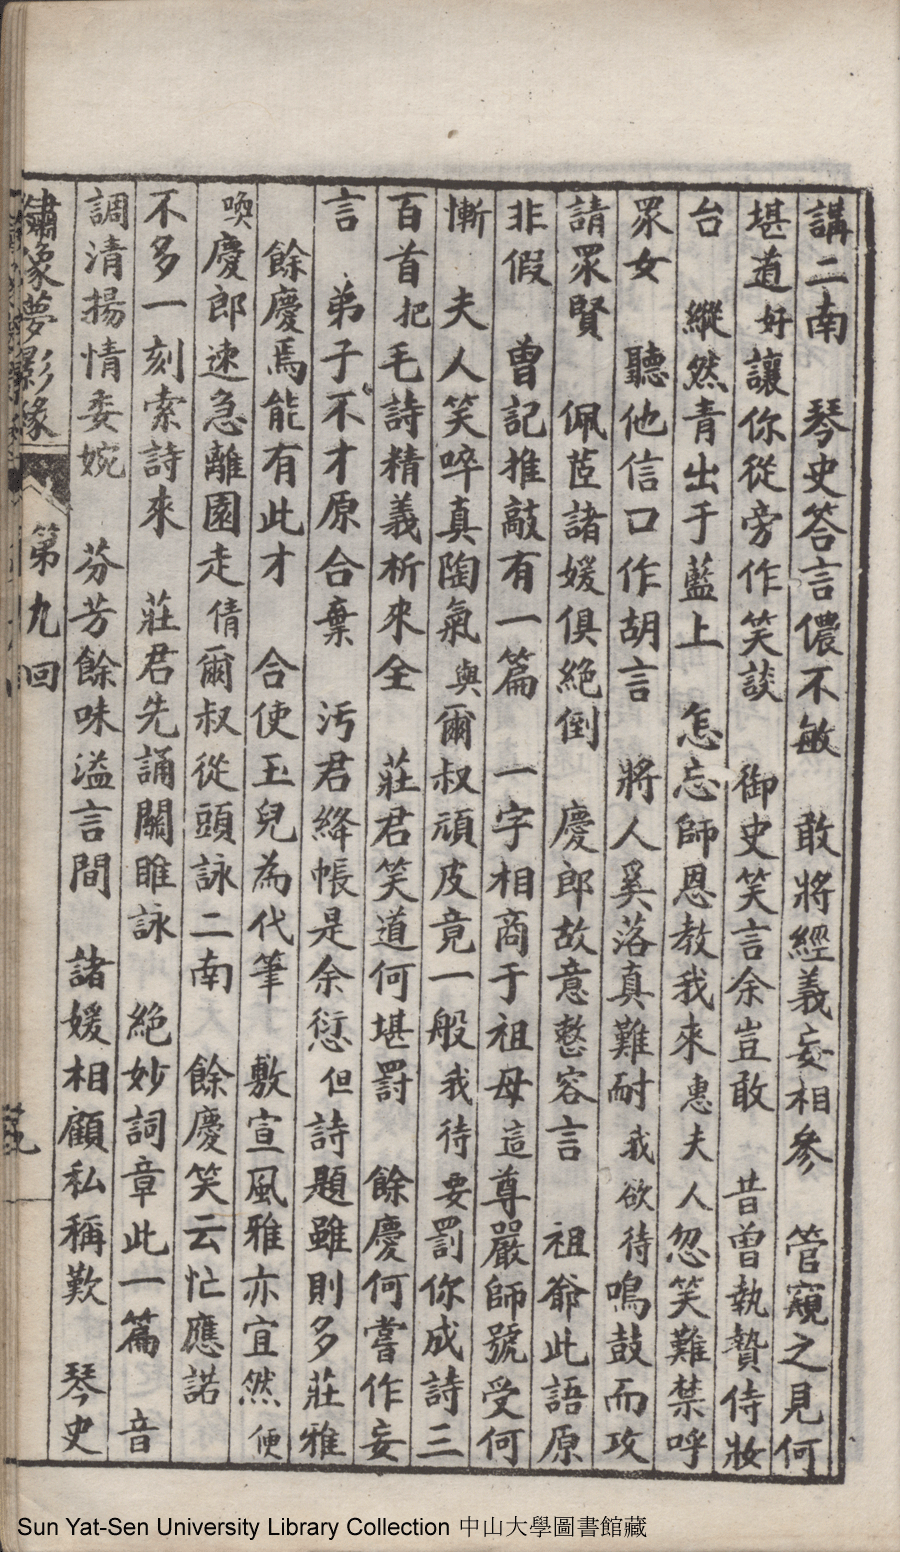 講二南　琴史答言儂不敏　敢將經義妄相參　管窺之見何
堪道好讓你從旁作笑談　御史笑言余豈敢　昔曾執贄侍妝
台　縱然青出于藍上　怎忘師恩教我來　惠夫人忽笑難禁呼
眾女　聽他信口作胡言　將人奚落真難耐　我欲待鳴鼓而攻
請眾賢　佩茝諸媛俱絕倒　慶郎故意憨容言　祖爺此語原
非假　曾記推敲有一篇　一字相商于祖母　這尊嚴師號受何
慚　夫人笑啐真陶氣　與爾叔頑皮竟一般　我待要罰你成詩三
百首　把毛詩精義析來全　莊君笑道何堪罰　餘慶何嘗作妄
言　弟子不才原合棄　汚君絳帳是余愆　但詩題雖則多莊雅
餘慶焉能有此才　合使玉兒為代筆　敷宣風雅亦宜然　便
喚慶郎速急離園走　倩爾叔從頭詠二南　餘慶笑云忙應諾
不多一刻索詩來　莊君先誦關雎詠　絕妙詞章此一篇　音
調清揚情委婉　芬芳餘味溢言間　諸媛相顧私稱歎　琴史
繡像夢影緣　第九回
Sun Yat-Sen University Library Collection 中山大學圖書館藏